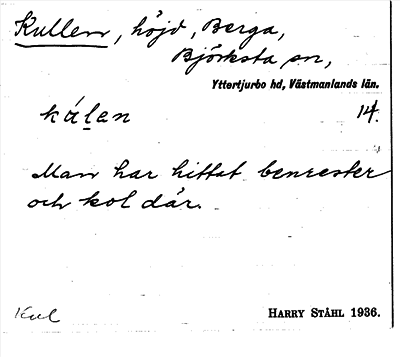 Kullen, höjd, Berga,
Björksta sn,
Yttertjurbo hd, Västmanlands län.
kúl̠en 14.
Man har hittat benrester
och kol där.
Kul
HARRY STÅHL 1936.